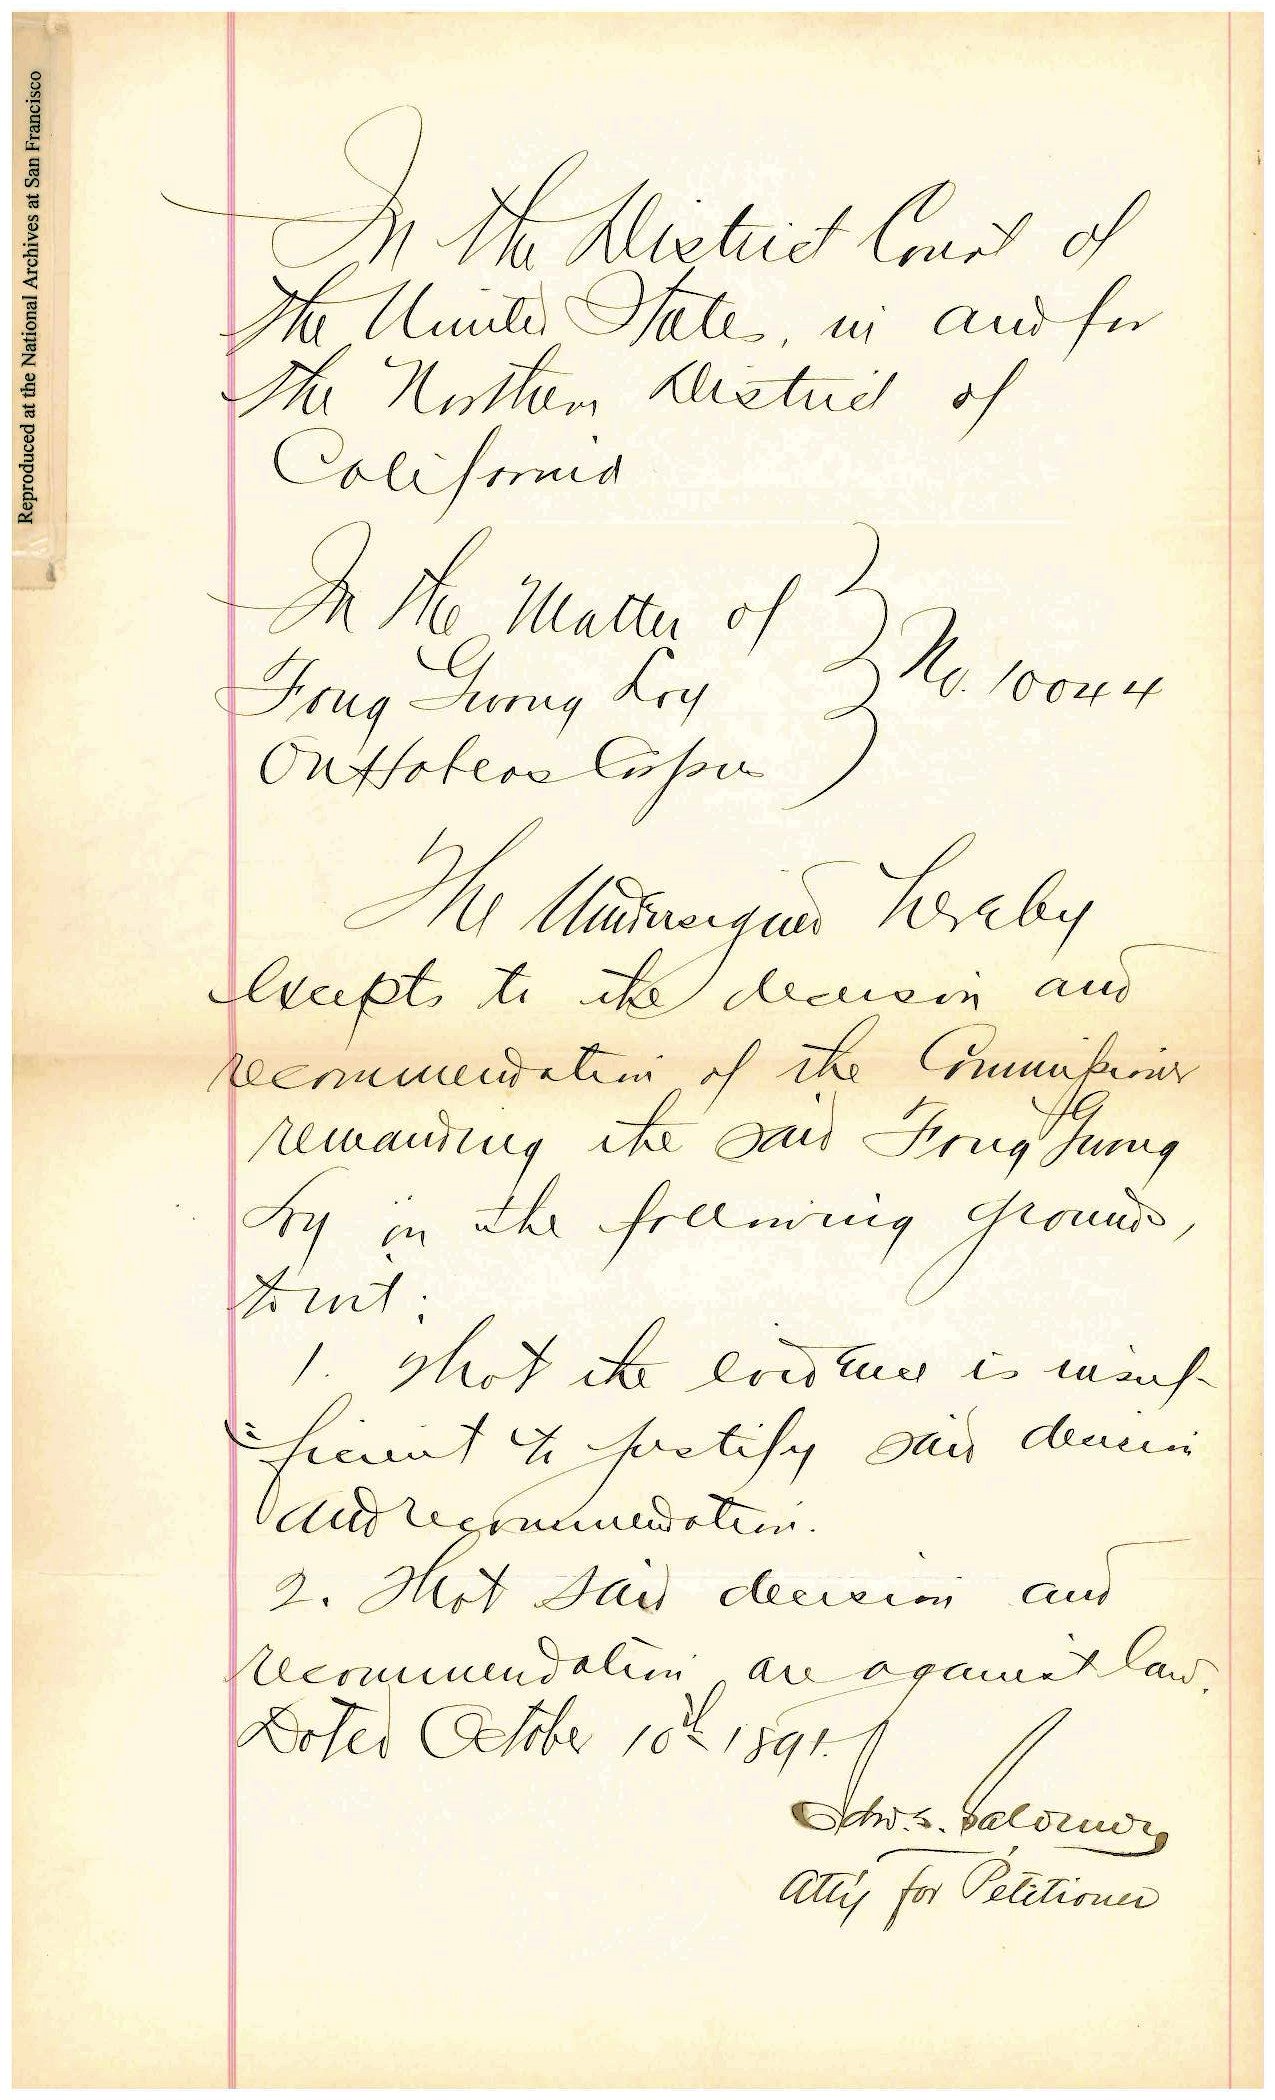 Reproduced at the National Archives at San Francisco
In the District Court of
the United States, in and for
the Northern District of
California
In the Matter of
Fong Gwong Loy
On Habeas Corpus
No. 10044
The Undersigned hereby
excepts to the decision and
recommendation of the Commissioner
remanding the said Fong Gwong
Loy on the following grounds,
to wit:
1. That the evidence is insuf-
ficient to justify said decision
and recommendation.
2. That said decision and
recommendation are against law.
Dated October 10th 1891.
Edw. S. Salomon
Atty for Petitioner